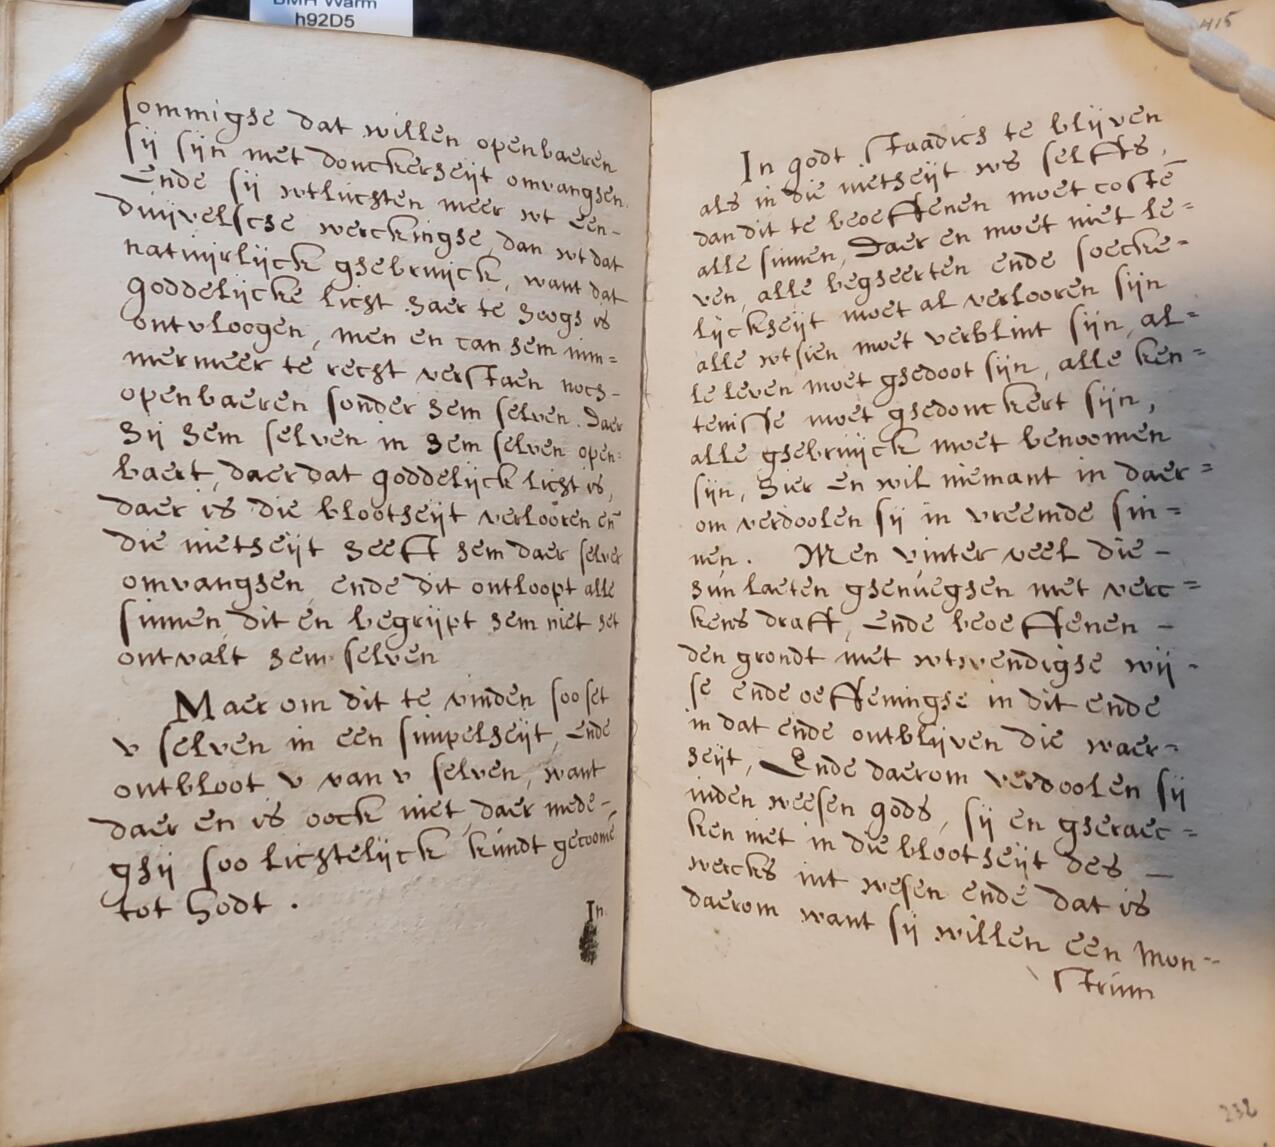 BMH Warm
h92D5
sommighe dat willen openbaeren
sij sijn met donckerheijt omvanghen.
Ende sij wtluchten meer wt een-
duijvelsche werckinghe, dan wt dat
natuijrlijck ghebruijck, want dat
goddelijcke licht haer te hoogh is
ontvloogen, men en can hem nim=
mermeer te recht verstaen noch-
openbaeren sonder hem selven. Daer
hij hem selven in hem selven open=
baert, daer dat goddelijck licht is,
daer is die blootheijt verlooren en̄
die nietheijt heefft hem daer selver
omvanghen, ende dit ontloopt alle
sinnen, dit en begrijpt hem niet het
ontvalt hem selven
Maer om dit te vinden soo set
v selven in een simpelheijt, Ende
ontbloot v van v selven, want
daer en is oock niet, daer mede-
ghij soo lichtelijck kúndt gecoomē
tot Godt .
In
415
In godt staadich te blijven
als in die nietheijt ws selffs,
dan dit te beoeffenen moet costē
alle sinnen, Daer en moet niet le=
ven, alle begheerten ende soecke=
lijckheijt moet al verlooren sijn
alle wtsien moet verblint sijn, al=
le leven moet ghedoot sijn, alle ken=
tenisse moet ghedonckert sijn,
alle ghebruijck moet benoomen
sijn, hier en wil niemant in daer=
om verdoolen sij in vreemde sin=
nen. Men vinter veel die -
hún laeten ghenúeghen met verc=
kens draff, Ende beoeffenen -
den grondt met wtwendighe wij-
se ende oeffeninghe in dit ende
in dat ende ontblijven die waer-
heijt, Ende daerom verdoolen sij
inden weesen gods, sij en gheraec=
ken niet in die blootheijt des -
wercks int wesen ende dat is
daerom want sij willen een mon-
strúm
232